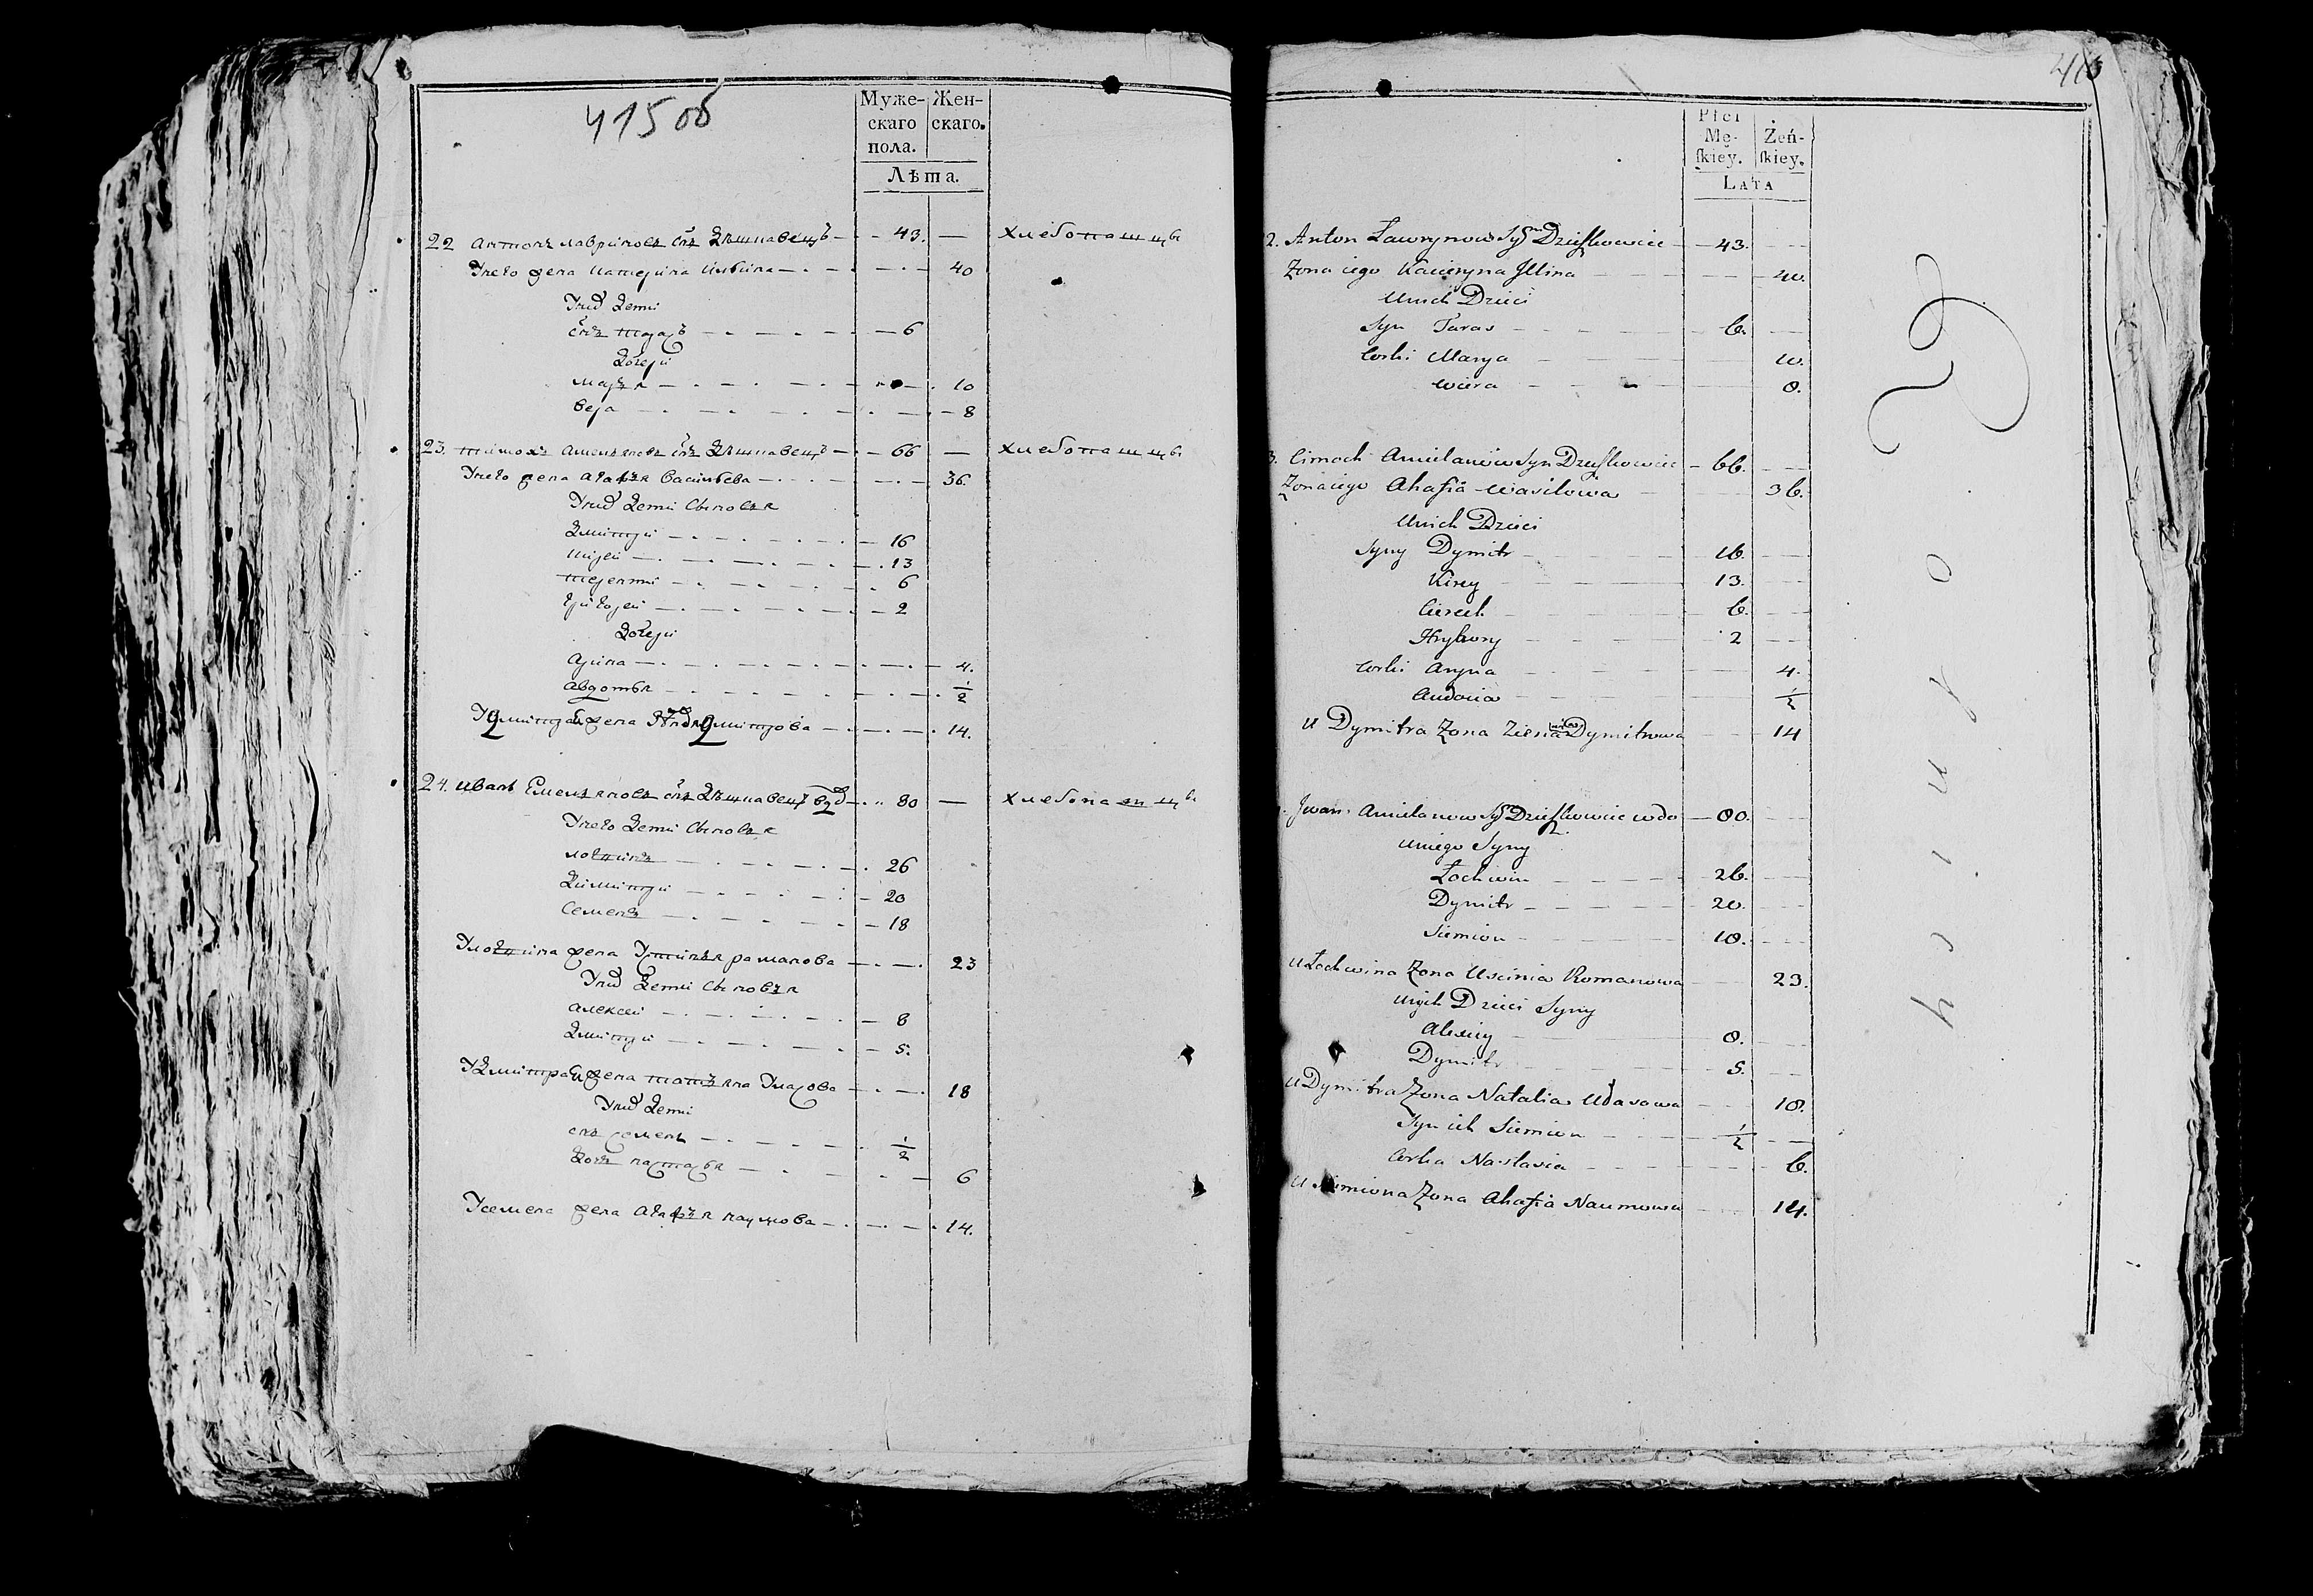 415 об
Муже-
скаго
пола.
Жен-
скаго.
Лѣта.
22 Антонъ Лавриновъ снъ Дѣшкавецъ 43. — хлебопашцы
Унего жена Катерина Ильина 40
Уних Дети
снъ Тарасъ 6
Дочери
Маръя 10
Вера 8
23. Тимохъ Амельяновъ снъ Дѣшкавецъ 66 — хлебопашцы
Унего жена Агафъя Васильева 36.
Уних Дети Сыновъя
Дмитри 16
Кирей 13
Терентий 6
Григорей 2
Дочери
Арина 4.
Авдотья 1/2
Удмитрая жена Дмитрова 14.
24. Иванъ Емельяновъ снъ Дѣшкавецъ вдо 80 — хлебопашцы
Унего Дети Сыновъя
Логвинъ 26
Димитри 20
Семенъ 18
Улогвина жена Устинъя Раманова 23
Уних Дети Сыновъя
Алексей 8
Дмитри 5.
Удмитрая жена Уласова 18
Уних Дети
снъ Семенъ 1/2
Дочь Настасья 6
Усемена жена Агафъя Наумова 14.
416
Płci
Mę-
ſkiey.
Żeń-
ſkiey.
LATA
2. Anton Ławrynow Syn Dzieszkowiec 43.
Zona iego Kacieryna Jllina 40.
Unich Dzieci
Syn Taras 6.
Corki Marya 10.
Wiera 8.
3. Cimoch Amielanow Syn Dzieszkowiec 66.
Zona iego Ahafia Wasilowa 36.
Unich Dzieci
Syny Dymitr 16.
Kirey 13.
Cierech 6.
Hryhory 2
Corki Aryna 4.
Audocia 1/2
U Dymitra Zona Dymitrowa 14
Jwan Amielanow Syn Dzieszkowiec wdo 80.
Uniego Syny
Łochwin 26.
Dymitr 20.
Siemion 18.
U Łochwina Zona Uscinia Romanowa 23.
Unich Dzieci Syny
Alexiey 8.
Dymitr 5.
U Dymitra Zona Natalia Ułasowa 18.
Syn ich Siemion 1/2
Corka Nastasia 6.
U Siemiona Zona Ahafia Naumowa 14.